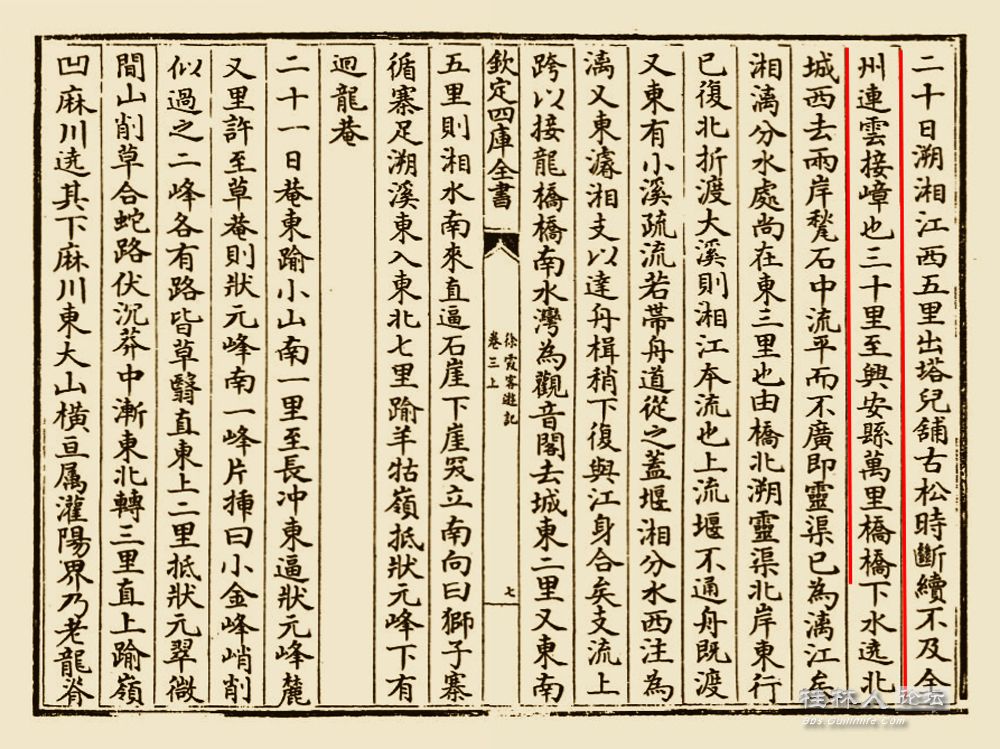 二十日溯湘江西五里出塔兒舖古松時斷續不及全
州連雲接嶂也三十里至興安縣萬里橋橋下水遶北
城西去兩岸甃石中流平而不廣即靈渠已為漓江矣
湘漓分水處尚在東三里也由橋北溯靈渠北岸東行
已復北折渡大溪則湘江本流也上流堰不通舟既渡
又東有小溪疏流若帶舟道從之蓋堰湘分水西注為
漓又東濬湘支以達舟楫稍下復與江身合矣支流上
跨以接龍橋橋南水灣為觀音閣去城東二里又東南
欽定四庫全書
徐霞客遊記
卷三上
七
五里則湘水南來直逼石崖下崖突立南向曰獅子寨
循寨足溯溪東入東北七里踰羊牯嶺抵狀元峰下有
迴龍菴
二十一日菴東踰小山南一里至長冲東逼狀元峰麓
又里許至草菴則狀元峰南一峰片揷曰小金峰峭削
似過之二峰各有路皆草翳直東上二里抵狀元翠微
間山削草合蛇路伏沉莽中漸東北轉三里直上踰嶺
凹麻川遶其下麻川東大山橫亘属灌陽界乃老龍脊
桂林人论坛
bbs.guilinlife.com